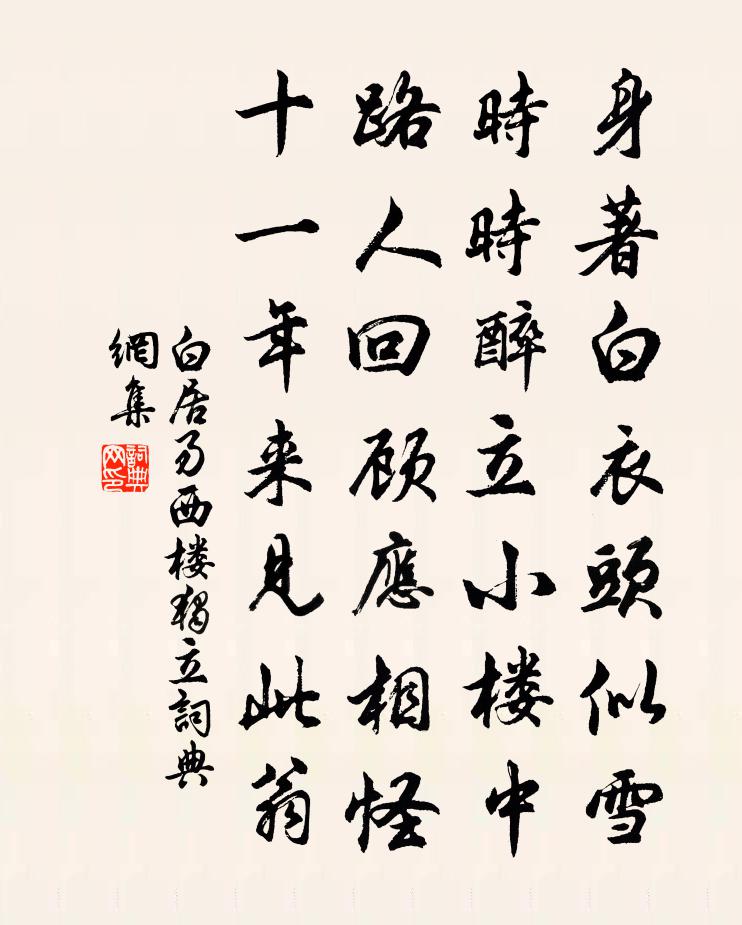 身著白衣頭似雪
時時醉立小楼中
路人回顾應相怪
十一年来見此翁
白居易西楼獨立詞典
網集
詞典
网印